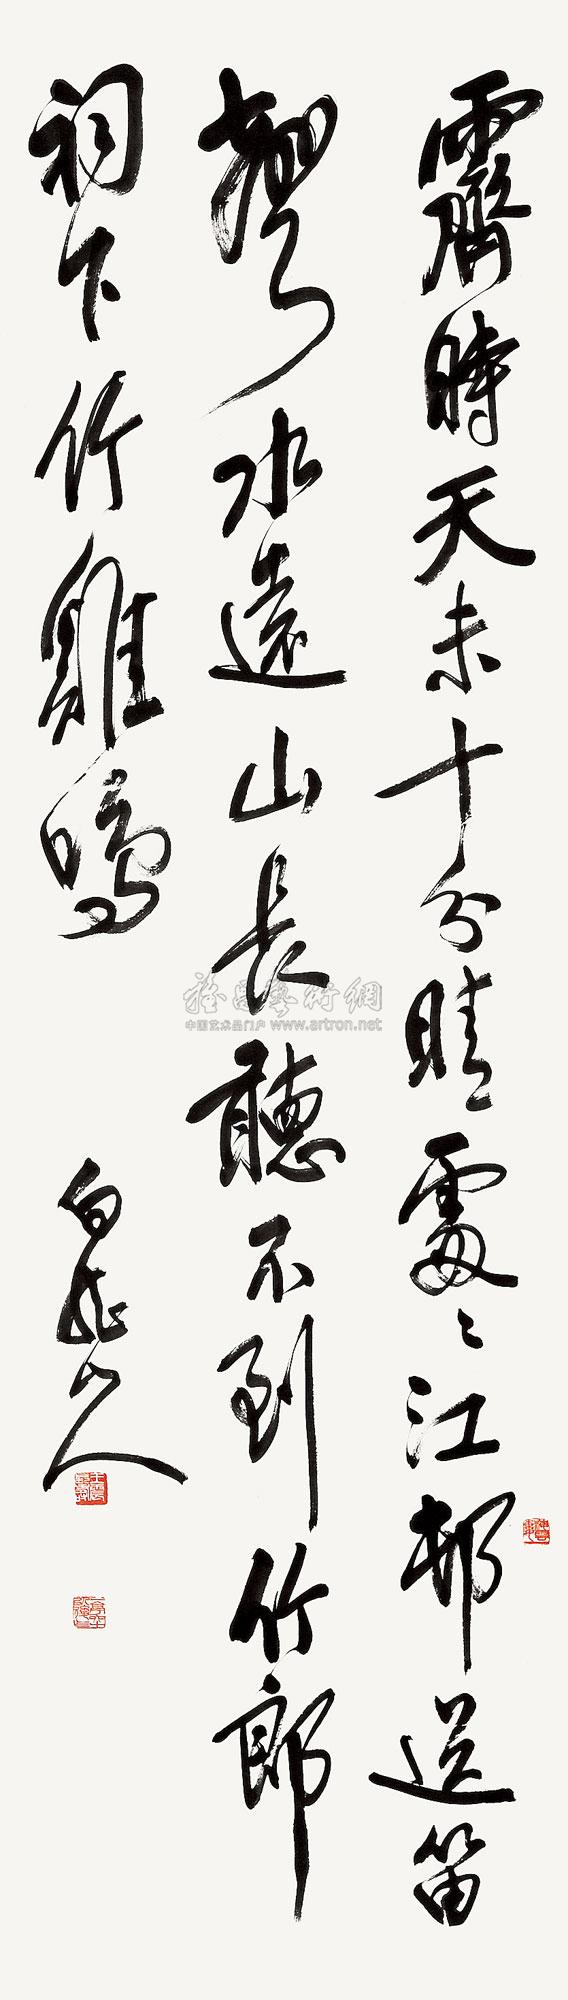 霽時天未十分晴處〻江邨送笛
聲水遠山長聽不到竹郎
祠下竹雞鳴
白龍山人
雅昌藝術網
中国艺术品门户 www.artron.net